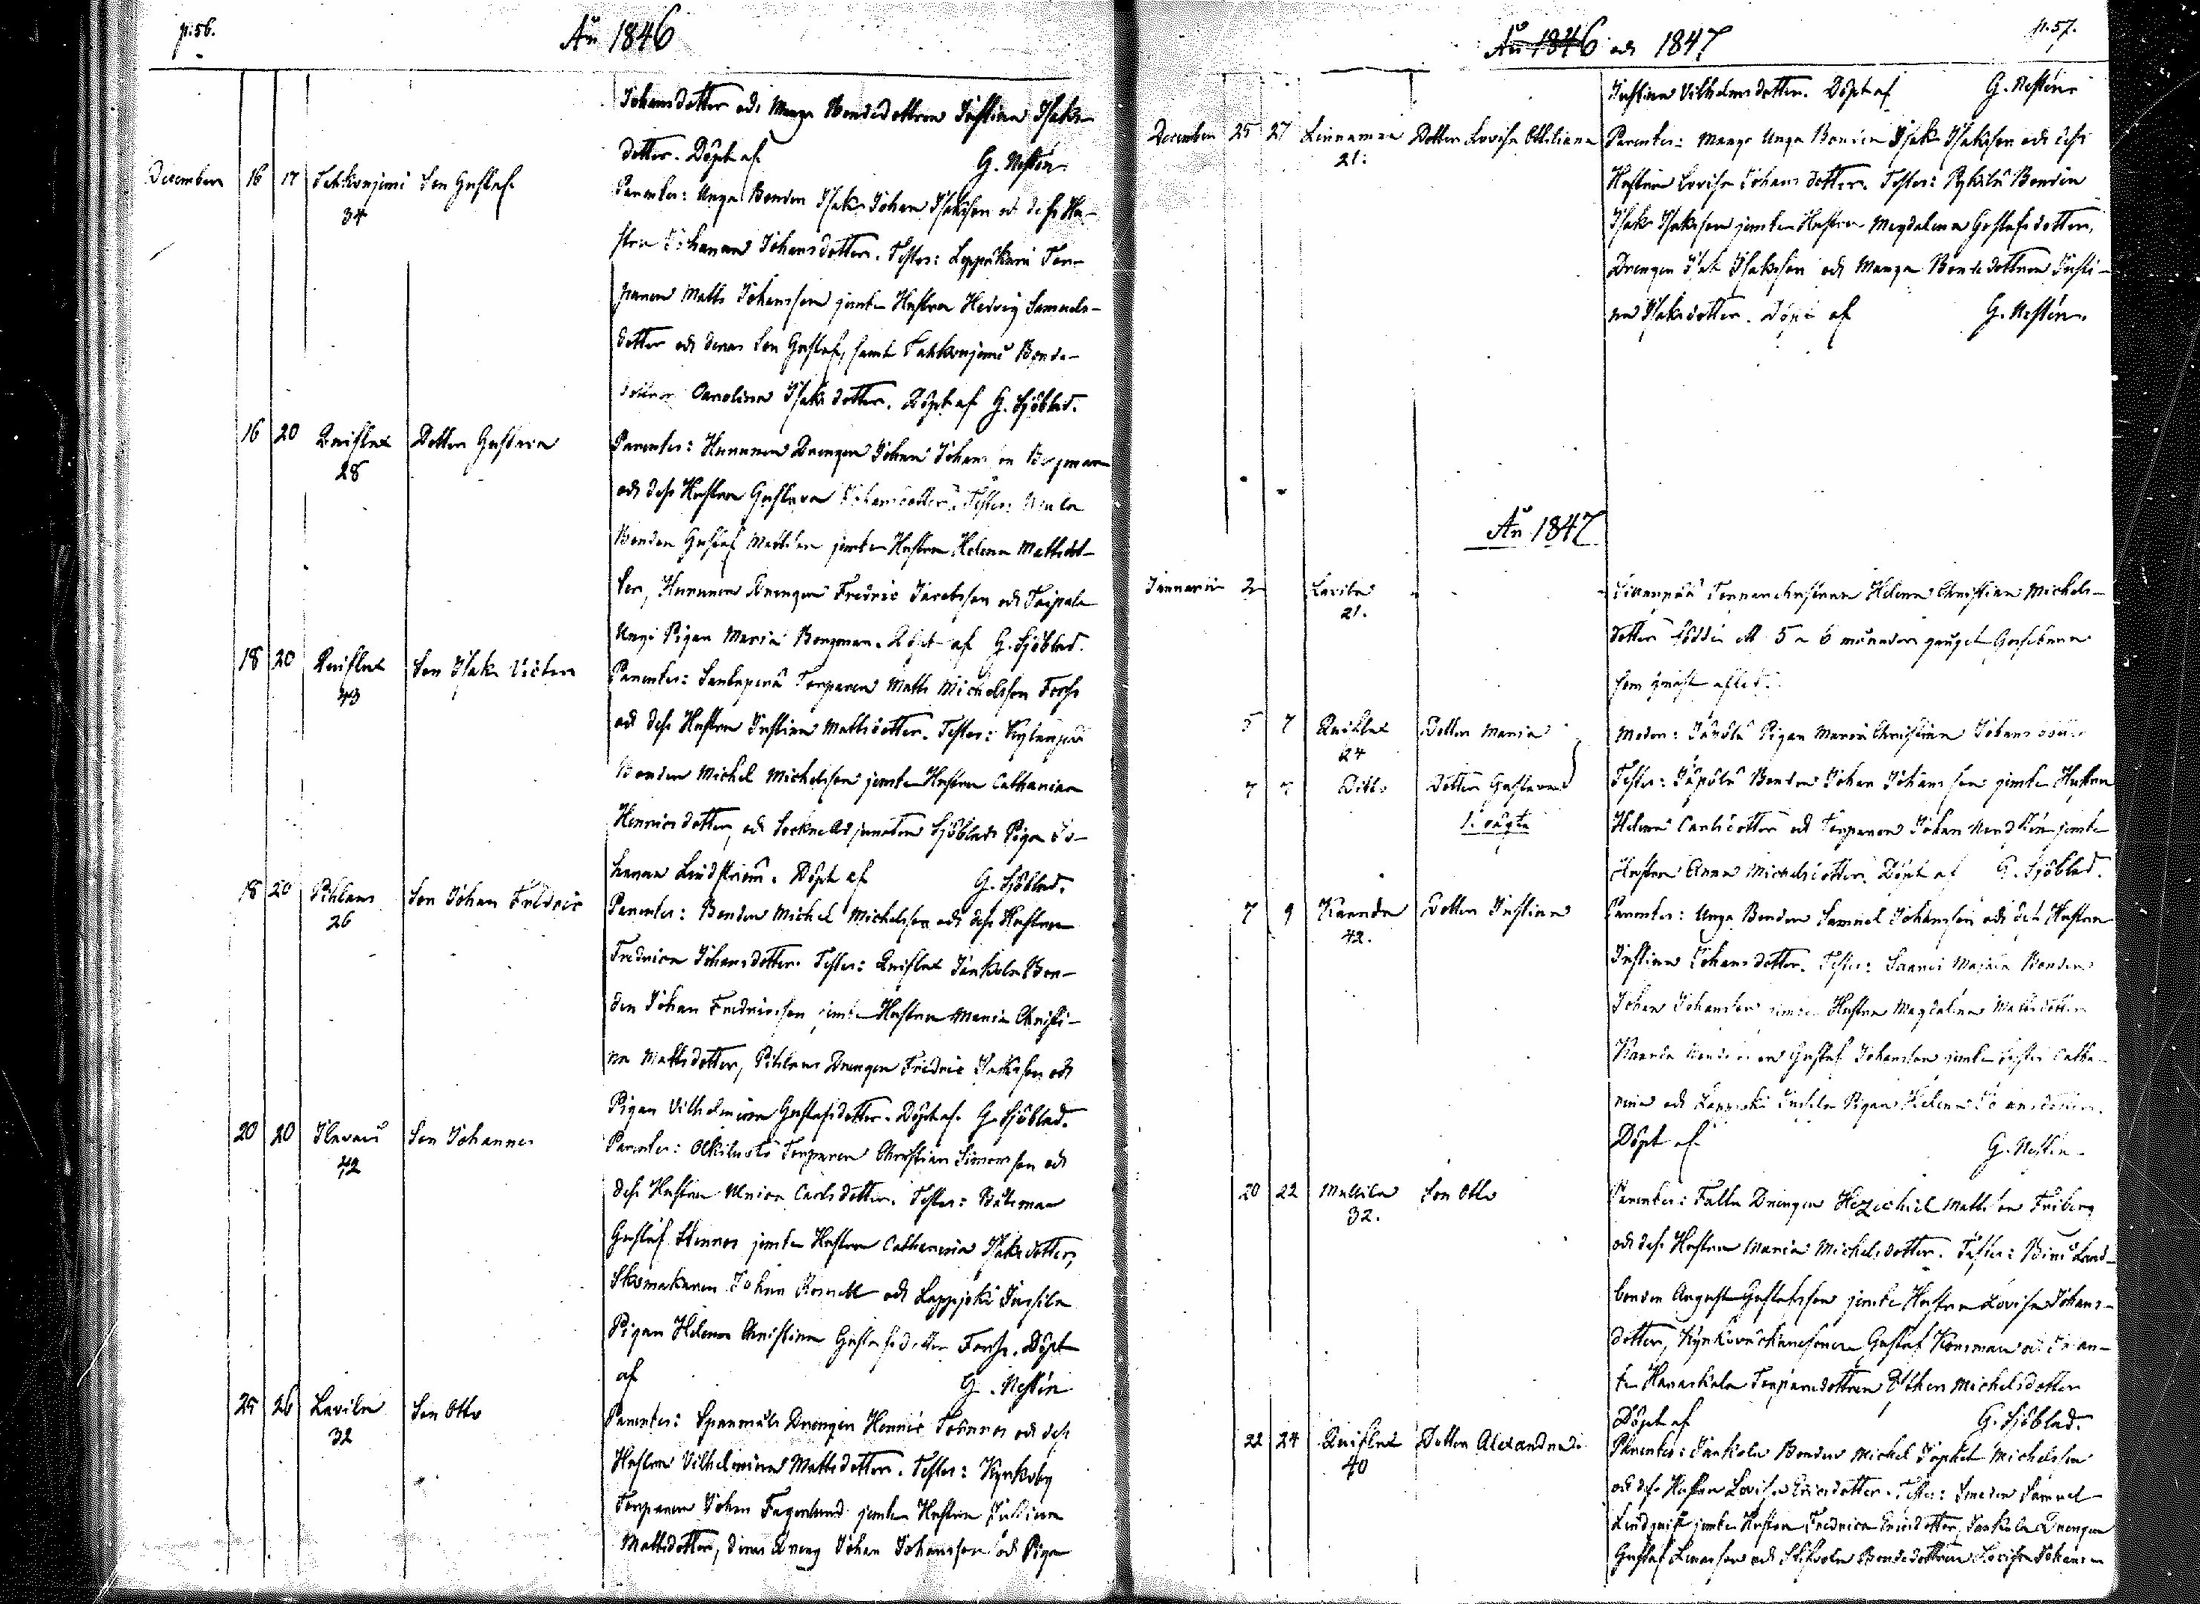 p. 56.
År 1846
Johansdotter och Manga Bondedottren Justina Isaks-
dotter. Döpt af G. Nestén.
December 16 17 Tahkonjemi Son Gustaf.
34
Parentes: Unga Bonden Isak Johan Isaksson och dess Hu-
stru Johanna Johansdotter. Testes: Leppäkari Tor-
paren Matts Johansson jemte Hustru Hedvig Samuels-
dotter och deras Son Gustaf, samt Tahkonjemi Bonde-
dottren Carolina Isaksdotter. Döpt af G. Sjöblad.
16 20 Quistnet Dotter Gustava
28
Parentes: Hurunen Drengen Johan Johansson Bergman
och dess Hustru Gustava Johansdotter. Testes:
Bonden Gustaf Mattsson jemte Hustru Helena Mattsdot-
ter, Hurunen Drengen Fredric Jacobsson och Taipale
Unge Pigan Maria Bergman. Döpt af G. Sjöblad.
18 20 Quistnet Son Isak Victor
43
Parentes: Santaperä Torparen Matts Michelsson Forss
och dess Hustru Justina Mattsdotter. Testes: Kylänpää
Bonden Michel Michelsson jemte Hustru Catharina
Henricsdotter, och Sockne Adjuncten Sjöblads Piga Jo-
hanna Lindström. Döpt af G. Sjöblad.
18 20 Pihlaus Son Johan Fredric
26
Parentes: Bonden Michel Michelsson och dess Hustru
Fredrica Johansdotter. Testes: Quistnet Jankola Bon-
den Johan Fredricsson jemte Hustru Maria Christi-
na Mattsdotter, Pihlaus Drengen Fredric Isaksson och
Pigan Vilhelmina Gustafsdotter. Döpt af G. Sjöblad.
20 20 Ilavais Son Johannes
42
Parentes: Olkiluoto Torparen Christian Simonsson och
dess Hustru Ulrica Carlsdotter. Testes: Båtsman
Gustaf Stennos jemte Hustru Catharina Isaksdotter,
Skomakaren Johan Rosnell och Lappjoki Jussila
Pigan Helena Christina Gustafsdotter Forss. Döpt
af G. Nestén
25 26 Lavila Son Otto
32
Parentes: Spannmåls Drengen Henric Johannes och dess
Hustru Vilhelmina Mattsdotter. Testes: Kynkoby
Torparen Johan Fagerlund jemte Hustru Justina
Mattsdotter, deras Dreng Johan Johansson och Piga
p. 57.
År 1846 och 1847
Justina Vilhelmsdotter. Döpt af G. Nestén
December 25 27 Linnamaa Dotter Lovisa Ottiliana
21.
Parentes: Mango Unga Bonden Isak Isaksson och dess
Hustru Lovisa Johansdotter. Testes: Rykilä Bonden
Isak Isaksson jemte Hustru Magdalena Gustafsdotter,
Drengen Isak Isaksson och Manga Bondedottren Justi-
na Isaksdotter. Döpt af G. Nestén.
År 1847
Januarii 2 Lavila
21.
Torparehustrun Helena Christina Michels-
dotter födde ett 5 a 6 månader gånget Gossebarn
som genast afled.
5 7 Quistnet Dotter Maria
24
Modren: Jäpölä Pigan Maria Christina Johansdotter
7 7 Ditto Dotter Gustava
Testes: Jäpölä Bonden Johan Johansson jemte Hustru
1. oägta
Helena Carlsdotter och Torparen Johan Nordlén jemte
Hustru Anna Michelsdotter. Döpt af G. Sjöblad.
7 9 Kaunda Dotter Justina
42.
Parentes: Unga Bonden Samuel Johansson och dess Hustru
Justina Johansdotter. Testes: Saaris Bonden
Johan Johansson jemte Hustru Magdalena Mattsdotter
Gustaf Johansson jemte Catha-
rina och Lappjoki Jussila Pigan Helena Johansdotter.
Döpt af G. Nestén
20 22 Mullila Son Otto
32.
Parentes: Falla Drengen Hezechiel Mattsson Friberg
och dess Hustru Maria Michelsdotter. Testes: Land-
bonden August Gustafsson jemte Hustru Lovisa Johans-
dotter, Gustaf Konsman och
Torparedottren Esther Michelsdotter
Döpt af G. Sjöblad.
22 24 Quistnet Dotter Alexandra.
40
Parentes: Jankola Bonden Michel Josphet Michelsson
och dess Hustru Lovisa Ericsdotter. Testes: Smeden Samuel
Lindqvist jemte Hustru Fredrica Ericsdotter, Jankola Drengen
Gustaf Linasson och Bondedottren Lovisa Johans-